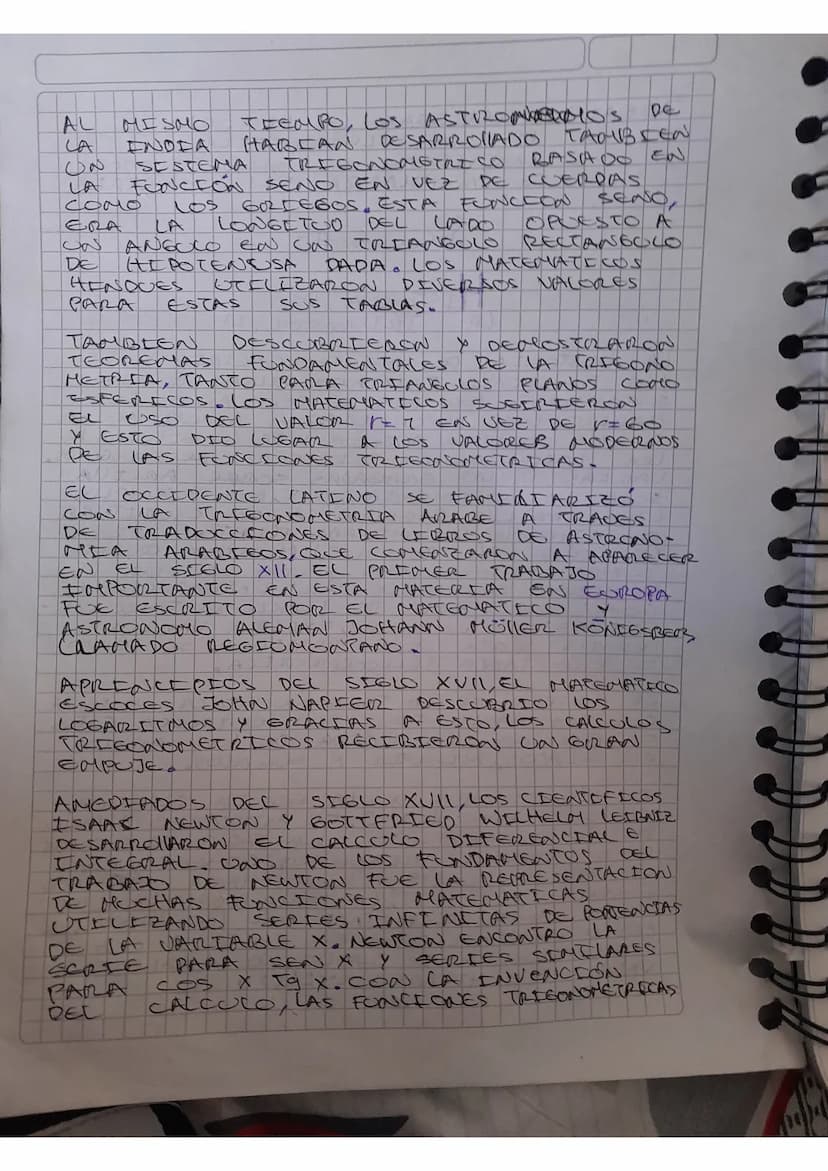 AL MISMO TIEMPO, LOS ASTRONOMOS DE
LA INDIA HABIAN DESARROLLADO TAMBIEN
UN SISTEMA TRIGONOMETRICO BASADO EN
LA FUNCIÓN SENO EN VEZ DE CUERDAS
COMO LOS GRIEGOS. ESTA FUNCION SENO,
ERA LA LONGITUD DEL LADO OPUESTO A
UN ANGULO EN UN TRIANGULO RECTANGULO
DE HIPOTENUSA DADA. LOS MATEMATICOS
HINDUES UTILIZARON DIVERSOS VALORES
PARA ESTAS SUS TABLAS.
TAMBIEN DESCUBRIERON Y DEMOSTRARON
TEOREMAS FUNDAMENTALES DE LA TRIGONO
METRIA, TANTO PARA TRIANGULOS PLANOS COMO
ESFERICOS. LOS MATEMATICOS SUGIRIERON
EL USO DEL VALOR r=1 EN VEZ DE r=60
Y ESTO DIO LUGAR A LOS VALORES MODERNOS
DE LAS FUNCIONES TRIGONOMETRICAS.
EL OCCIDENTE LATINO SE FAMILIARIZÓ
CON LA TRIGONOMETRIA ARABE A TRAVES
DE TRADUCCIONES DE LIBROS DE ASTRONO-
MIA ARABIGOS, QUE COMENZARON A APARECER
EN EL SIGLO XII. EL PRIMER TRABAJO
IMPORTANTE EN ESTA MATERIA EN EUROPA
FUE ESCRITO POR EL MATEMATICO Y
ASTRONOMO ALEMAN JOHANN MÜLLER KÖNIGSBERG,
LLAMADO REGIOMONTANO.
APRINCIPIOS DEL SIGLO XVII, EL MATEMATICO
ESCOCES JOHN NAPIER DESCUBRIO LOS
LOGARITMOS Y GRACIAS A ESTO, LOS CALCULOS
TRIGONOMETRICOS RECIBIERON UN GRAN
EMPUJE.
AMEDIADOS DEL SIGLO XVII, LOS CIENTIFICOS
ISAAC NEWTON Y GOTTFRIED WILHELM LEIBNIZ
DESARROLLARON EL CALCULO DIFERENCIAL E
INTEGRAL. UNO DE LOS FUNDAMENTOS DEL
TRABAJO DE NEWTON FUE LA REPRESENTACION
DE MUCHAS FUNCIONES MATEMATICAS
UTILIZANDO SERIES INFINITAS DE POTENCIAS
DE LA VARIABLE X. NEWTON ENCONTRO LA
SERIE PARA SEN X Y SERIES SIMILARES
PARA COS X TG X. CON LA INVENCIÓN
DEL CALCULO, LAS FUNCIONES TRIGONOMETRICAS